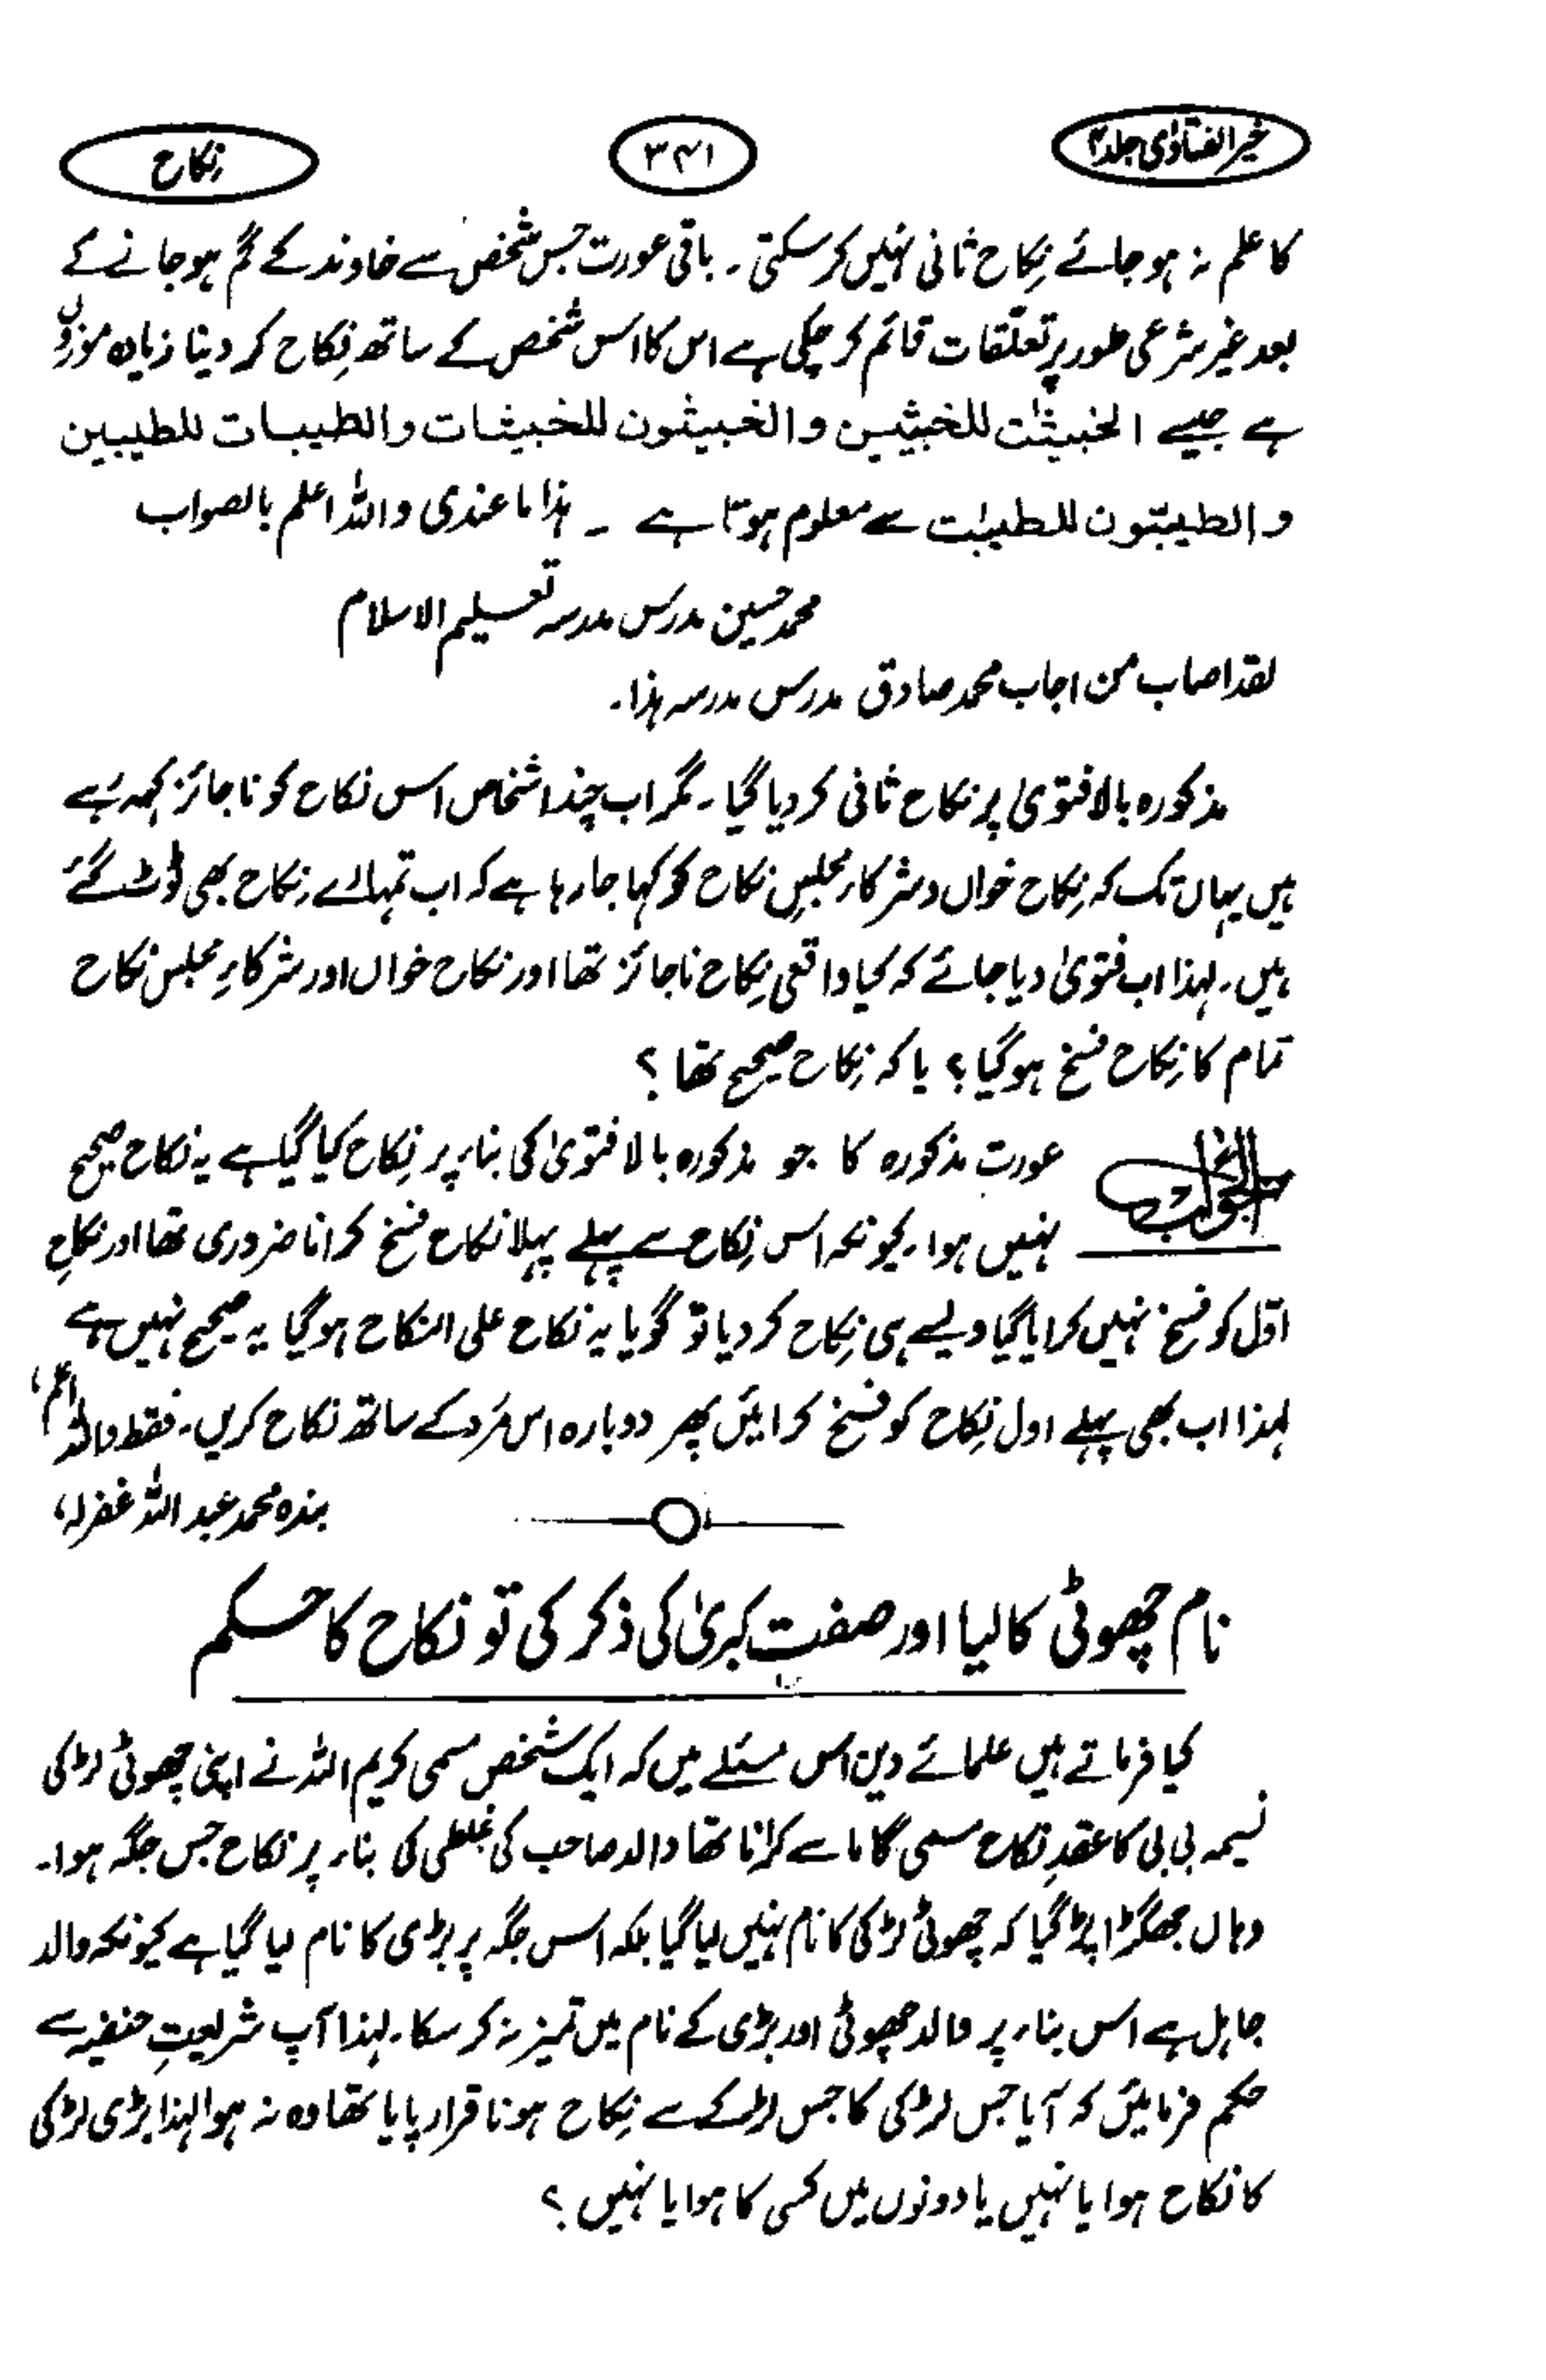 خیر الفتاویٰ جلد ۴
۳۴۱
نکاح
کا علم نہ ہو جائے نِکاح ثانی نہیں کر سکتی ۔ باقی عورت جس شخص سے خاوند کے گم ہو جانے کے
بعد غیر شرعی طور پر تعلّقات قائم کر چکی ہے اس کا اس شخص کے ساتھ نِکاح کر دینا زیادہ موزوں
ہے جیسے الخبیثٰت للخبثیین والخبیثون للخبیثات والطیبات للطیبین
والطیبّون للطیبٰت سے معلوم ہوتا ہے ۔ ہذا ما عندی واللہ اعلم بالصواب
محمد حسین مدرس مدرسہ تعلیم الاسلام
لقد اصاب من اجاب محمد صادق مدرس مدرسہ ہذا۔
مذکورہ بالا فتویٰ پر نکاح ثانی کر دیا گیا ۔ مگر اب چند اشخاص اس نکاح کو ناجائز کہہ رہے
ہیں یہاں تک کہ نِکاح خواں و شرکاء مجلسِ نکاح کو کہا جا رہا ہے کہ اب تمہارے نِکاح بھی ٹوٹ گئے
ہیں۔ لہذا اب فتویٰ دیا جائے کہ کیا واقعی نِکاح ناجائز تھا اور نکاح خواں اور شرکاءِ مجلس نکاح
تمام کا نِکاح فسخ ہو گیا ؟ یا کہ نِکاح صحیح تھا ؟
الجواب عورت مذکورہ کا جو مذکورہ بالا فتویٰ کی بناء پر نِکاح کیا گیا ہے یہ نکاح صحیح
نہیں ہوا ۔ کیونکہ اس نِکاح سے پہلے پہلا نکاح فسخ کرانا ضروری تھا اور نکاحِ
اوّل کو فسخ نہیں کرایا گیا ویسے ہی نِکاح کر دیا تو گویا یہ نکاح علی النکاح ہو گیا یہ صحیح نہیں ہے
لہذا اب بھی پہلے اول نِکاح کو فسخ کرائیں پھر دوبارہ اس مَرد کے ساتھ نکاح کریں ۔ فقط واللہ اعلم،
بندہ محمد عبد اللہ غفرلہ،
نام چھوٹی کا لیا اور صفتِ کبریٰ کی ذکر کی تو نکاح کا حکم
کیا فرماتے ہیں علمائے دین اس مسئلے میں کہ ایک شخص مسمی کریم اللہ نے اپنی چھوٹی لڑکی
نسیمہ بی بی کا عقدِ نکاح مسمی گاما سے کرانا تھا والد صاحب کی غلطی کی بناء پر نکاح جس جگہ ہوا ۔
وہاں جھگڑا پڑ گیا کہ چھوٹی لڑکی کا نام نہیں لیا گیا بلکہ اس جگہ پر بڑی کا نام لیا گیا ہے کیونکہ والد
جاہل ہے اس بناء پر والد چھوٹی اور بڑی کے نام میں تمیز نہ کر سکا ۔ لہذا آپ شریعتِ حنفیہ سے
حکم فرمائیں کہ آیا جس لڑکی کا جس لڑکے سے نِکاح ہونا قرار پایا تھا وہ نہ ہوا لہذا بڑی لڑکی
کا نکاح ہوا یا نہیں یا دونوں میں کسی کا ہوا یا نہیں ؟